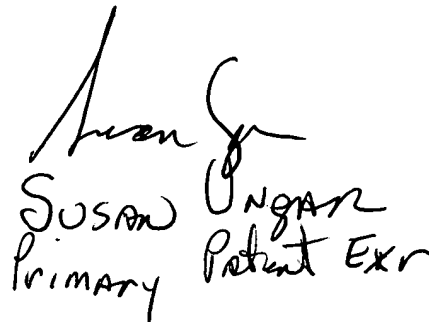 Susan
SUSAN UNGAR
Primary Patent Exr